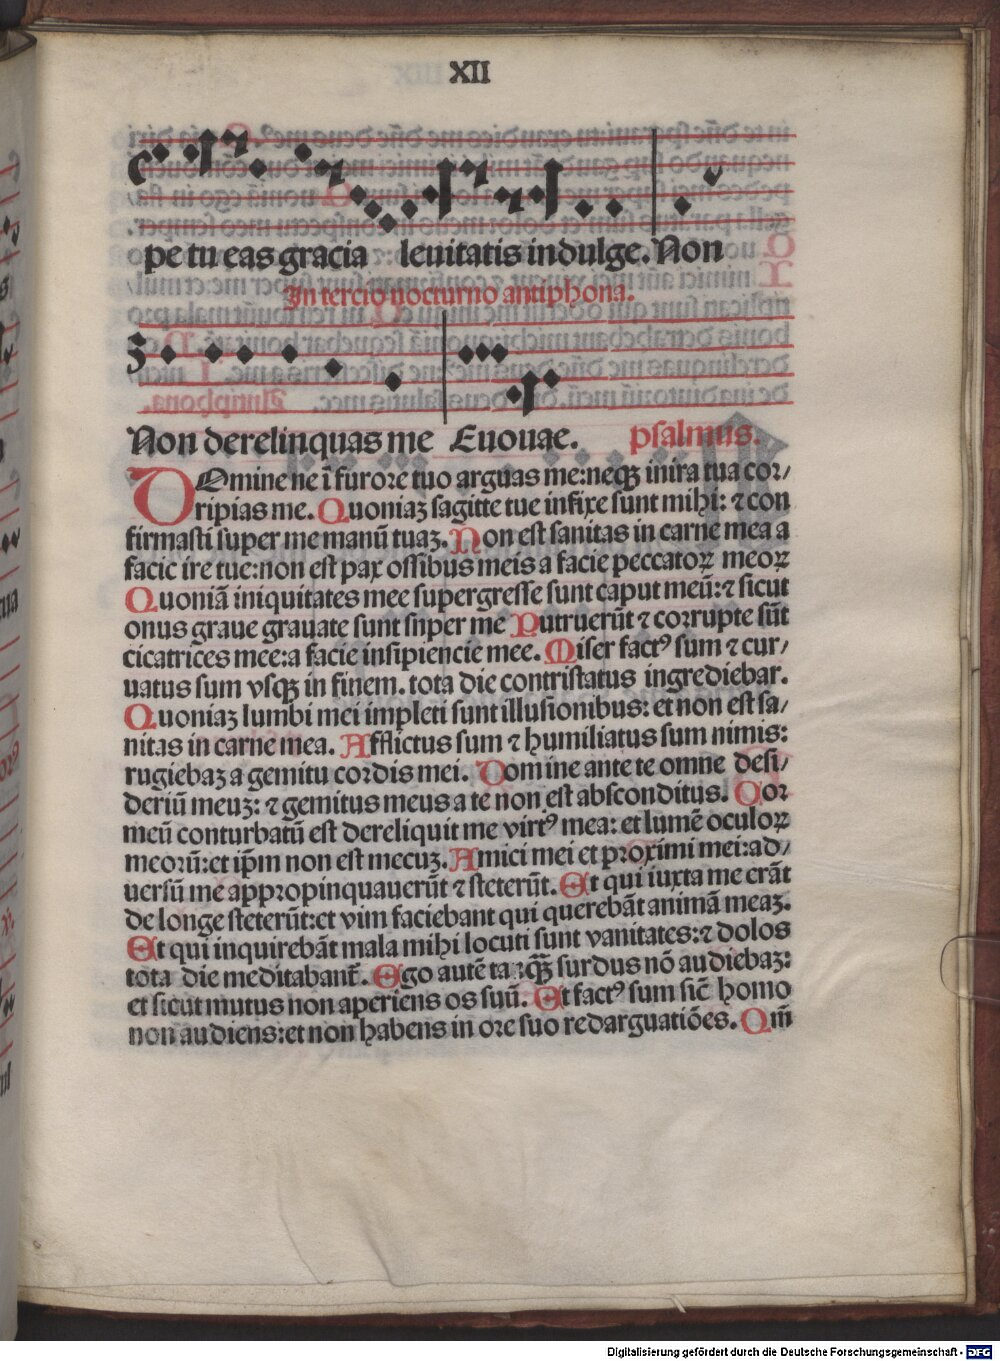 XII
pe tu eas gracia leuitatis indulge. Non
In tercio nocturno antiphona.
Non derelinquas me Euouae. psalmus.
DOmine ne ī furore tuo arguas me:neqꝫ inira tua cor/
ripias me. Quoniaꝫ sagitte tue infixe sunt mihi: ⁊ con
firmasti super me manū tuaꝫ. Non est sanitas in carne mea a
facie ire tue:non est pax ossibus meis a facie peccatoꝝ meoꝝ
Quoniā iniquitates mee supergresse sunt caput meū:⁊ sicut
onus graue grauate sunt snper me Putruerūt ⁊ corrupte sūt
cicatrices mee:a facie insipiencie mee. Miser factꝰ sum ⁊ cur/
uatus sum vsqꝫ in finem. tota die contristatus ingrediebar.
Quoniaꝫ lumbi mei impleti sunt illusionibus: et non est sa/
nitas in carne mea. Afflictus sum ⁊ humiliatus sum nimis:
rugiebaꝫ a gemitu cordis mei. Domine ante te omne desi/
deriū meuꝫ: ⁊ gemitus meus a te non est absconditus. Cor
meū conturbatū est dereliquit me virtꝰ mea: et lumē oculoꝝ
meorū:et ip̄m non est mecuꝫ. Amici mei et proximi mei:ad/
uersū me appropinquauerūt ⁊ steterūt. Et qui iuxta me erāt
de longe steterūt:et vim faciebant qui querebāt animā meaꝫ.
Et qui inquirebāt mala mihi locuti sunt vanitates:⁊ dolos
tota die meditabant̄. Ego autē surdus nō audiebaꝫ:
et sicut mutus non aperiens os suū. Et factꝰ sum sic̄ homo
non audiens:et non habens in ore suo redarguatiōes. Qm̄
Digitalisierung gefördert durch die Deutsche Forschungsgemeinschaft - DFG